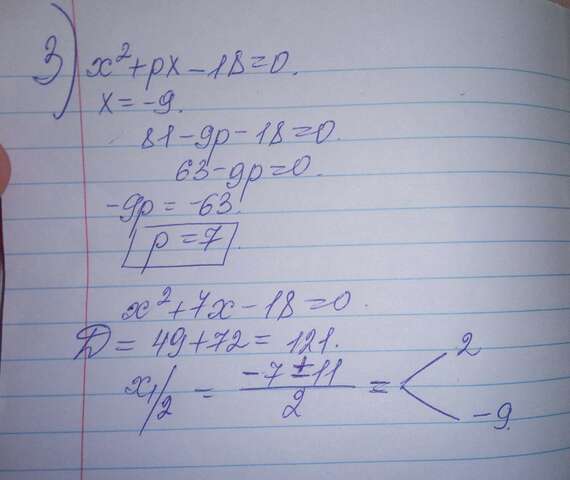 3) x²+px-18=0.
x=-9.
81-9p-18=0.
63-9p=0.
-9p=-63.
p=7.
x²+7x-18=0.
D=49+72=121.
x1/2 = (-7±11)/2 = < 2
-9.